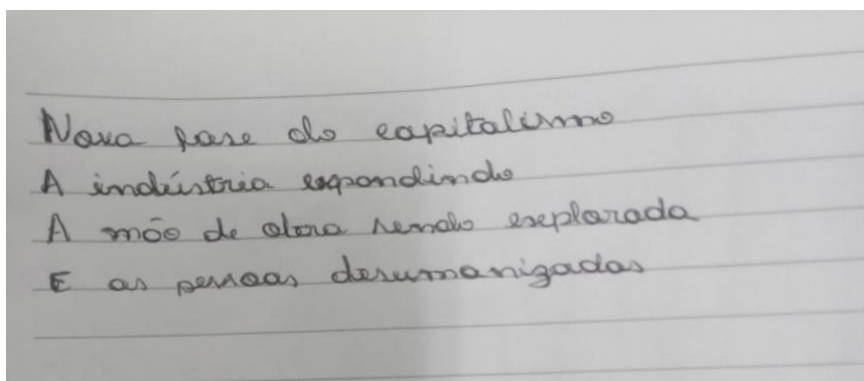 Nova fase do capitalismo
A indústria expandindo
A mão de obra sendo explorada
E as pessoas desumanizadas